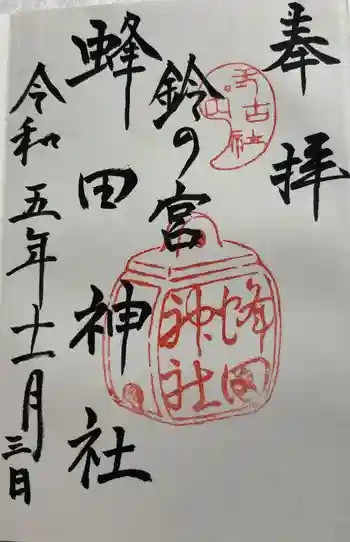 奉拝
鈴の宮
蜂田神社
令和五年十一月三日
蜂田
神社